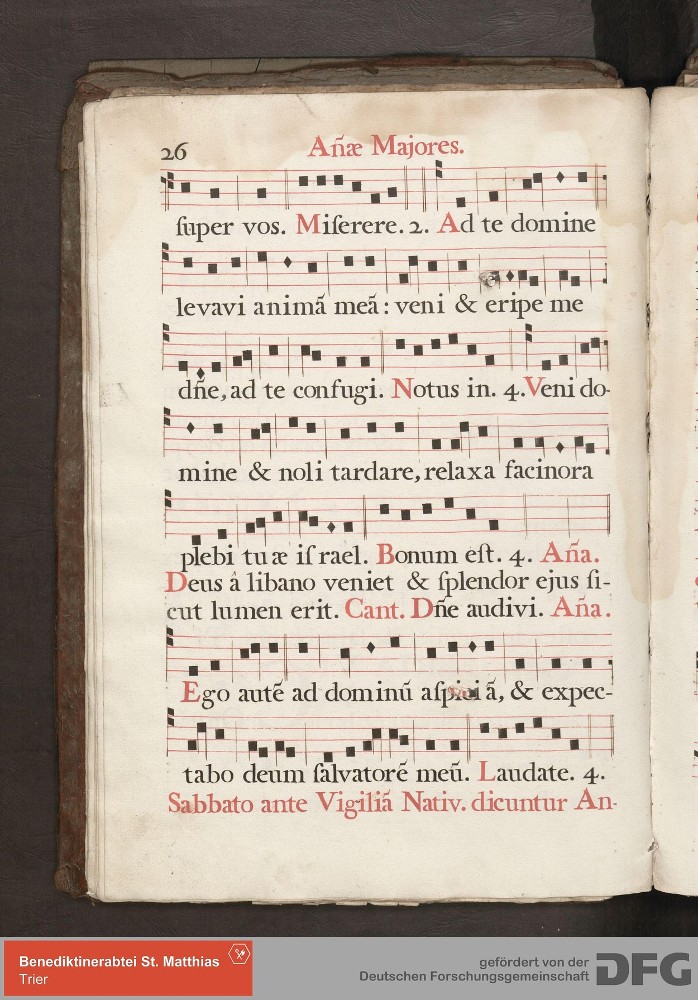 26 Añæ Majores.
ſuper vos. Miſerere. 2. Ad te domine
levavi animã meã: veni & eripe me
dñe, ad te confugi. Notus in. 4. Veni do-
mine & noli tardare, relaxa facinora
plebi tuæ iſrael. Bonum eſt. 4. Aña.
Deus â libano veniet & ſplendor ejus ſi-
cut lumen erit. Cant. Dñe audivi. Aña.
Ego autẽ ad dominũ aſpiciã, & expec-
tabo deum ſalvatorẽ meũ. Laudate. 4.
Sabbato ante Vigiliã Nativ. dicuntur An-
Benediktinerabtei St. Matthias
Trier
gefördert von der
Deutschen Forschungsgemeinschaft
DFG